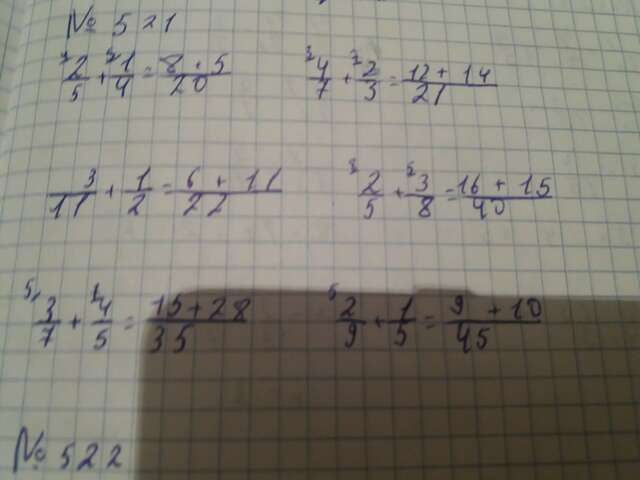 № 521
2/5 + 1/4 = 8 . 5/20    3 4/7 + 2/3 = 12 + 14/21
3/11 + 1/2 = 6 + 11/22    8 2/5 + 5 3/8 = 16 + 15/40
5 3/7 + 4/5 = 15 + 28/35    5 2/9 + 1/5 = 9 + 10/45
№ 522